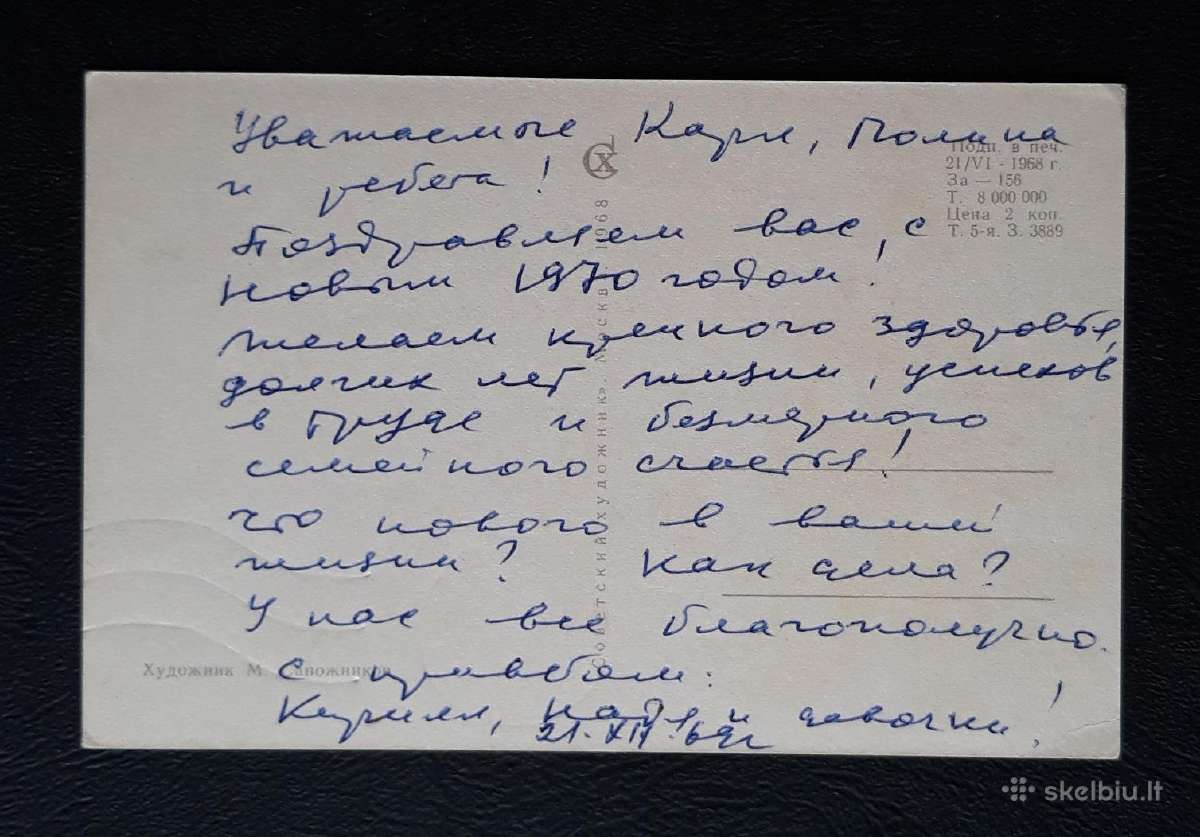 Уважаемые Карл, Полина
и ребята!
Поздравляем вас, с
Новым 1970 годом!
Желаем крепкого здоровья,
долгих лет жизни, успехов
в труде и безмерного
семейного счастья!
Что нового в вашей
жизни? Как дела?
У нас все благополучно.
С приветом:
Кирилл, Надя и девочки!
21.XII.69г
Подп. в печ.
21/VI - 1968 г.
За — 156
Т. 8 000 000
Цена 2 коп.
Т. 5-я. З. 3889
СХ
«Советский художник». Москва 1968
Художник М. Сапожников
skelbiu.lt